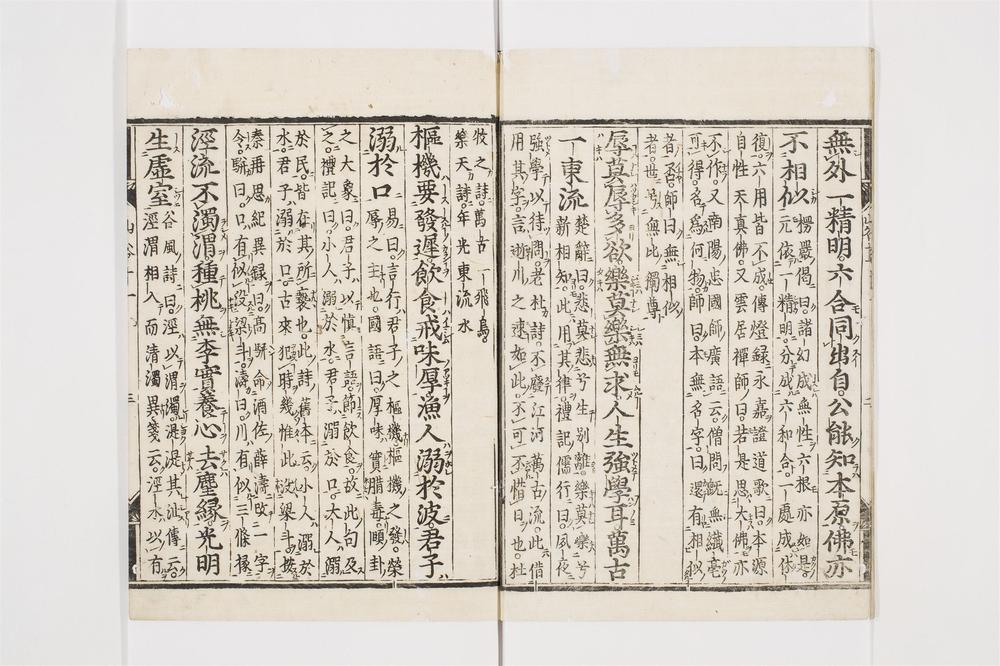 無外一精明六合同出自公能知本原佛亦
不相似
楞嚴偈曰諸幻成無性六根亦如是
元依一精明分成六和合一處成休
復六用皆不成傳燈録永嘉證道歌曰本源
自性天真佛又雲居禪師曰若是思大佛亦
不作又南陽忠國師廣語云僧問既無纖毫
可得名爲何物師曰本無名字曰還有相似
者否師曰無相似
者世号無此獨尊
辱莫辱多欲樂莫樂無求人生強學耳萬古
一東流
楚辭曰悲莫悲兮生別離樂莫樂兮
新相知此用其律禮記儒行曰夙夜
強學以待問老杜詩不廢江河萬古流此借
用其字言逝川之速如此不可不惜日也杜
牧之詩萬古一飛鳥
樂天詩年光東流水
樞機要發遲飲食戒味厚漁人溺於波君子
溺於口
易曰言行君子之樞機樞機之發榮
辱之主也國語曰厚味寔腊毒頤卦
之大象曰君子以慎言語節飲食故此句及
之禮記曰小人溺於水君子溺於口大人溺
於民皆在其所褻也此詩舊本云小人溺於
水君子溺於口古來犯時幾惟此没梁斗按
秦再思紀異録曰高駢命酒佐薛濤改一字
令駢曰口有似没梁斗濤曰川有似三條椽
涇流不濁渭種桃無李實養心去塵縁光明
生虛室
谷風詩曰涇以渭濁湜湜其沚傳云
涇渭相入而清濁異箋云涇水以有